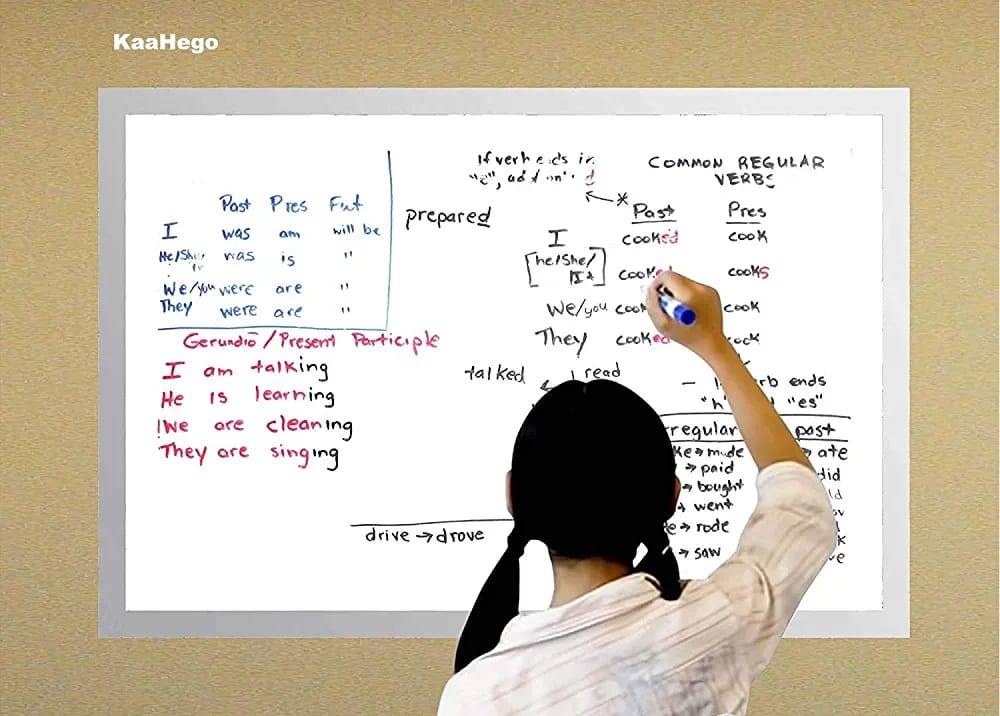 KaaHego
Past Pres Fut
I was am will be
He/She/ was is "
We/you were are "
They were are "
Gerundio / Present Participle
I am talking
He is learning
We are cleaning
They are singing
If verb ends in
"e", add d
prepared
COMMON REGULAR
VERBS
* Past Pres
I cooked cook
[he/she/ cooked cooks
It]
We/you cook
They cooked
talked read
— ends
"h" "es"
regular past
made ate
→ paid did
→ bought
→ went
→ rode
→ saw
drive → drove